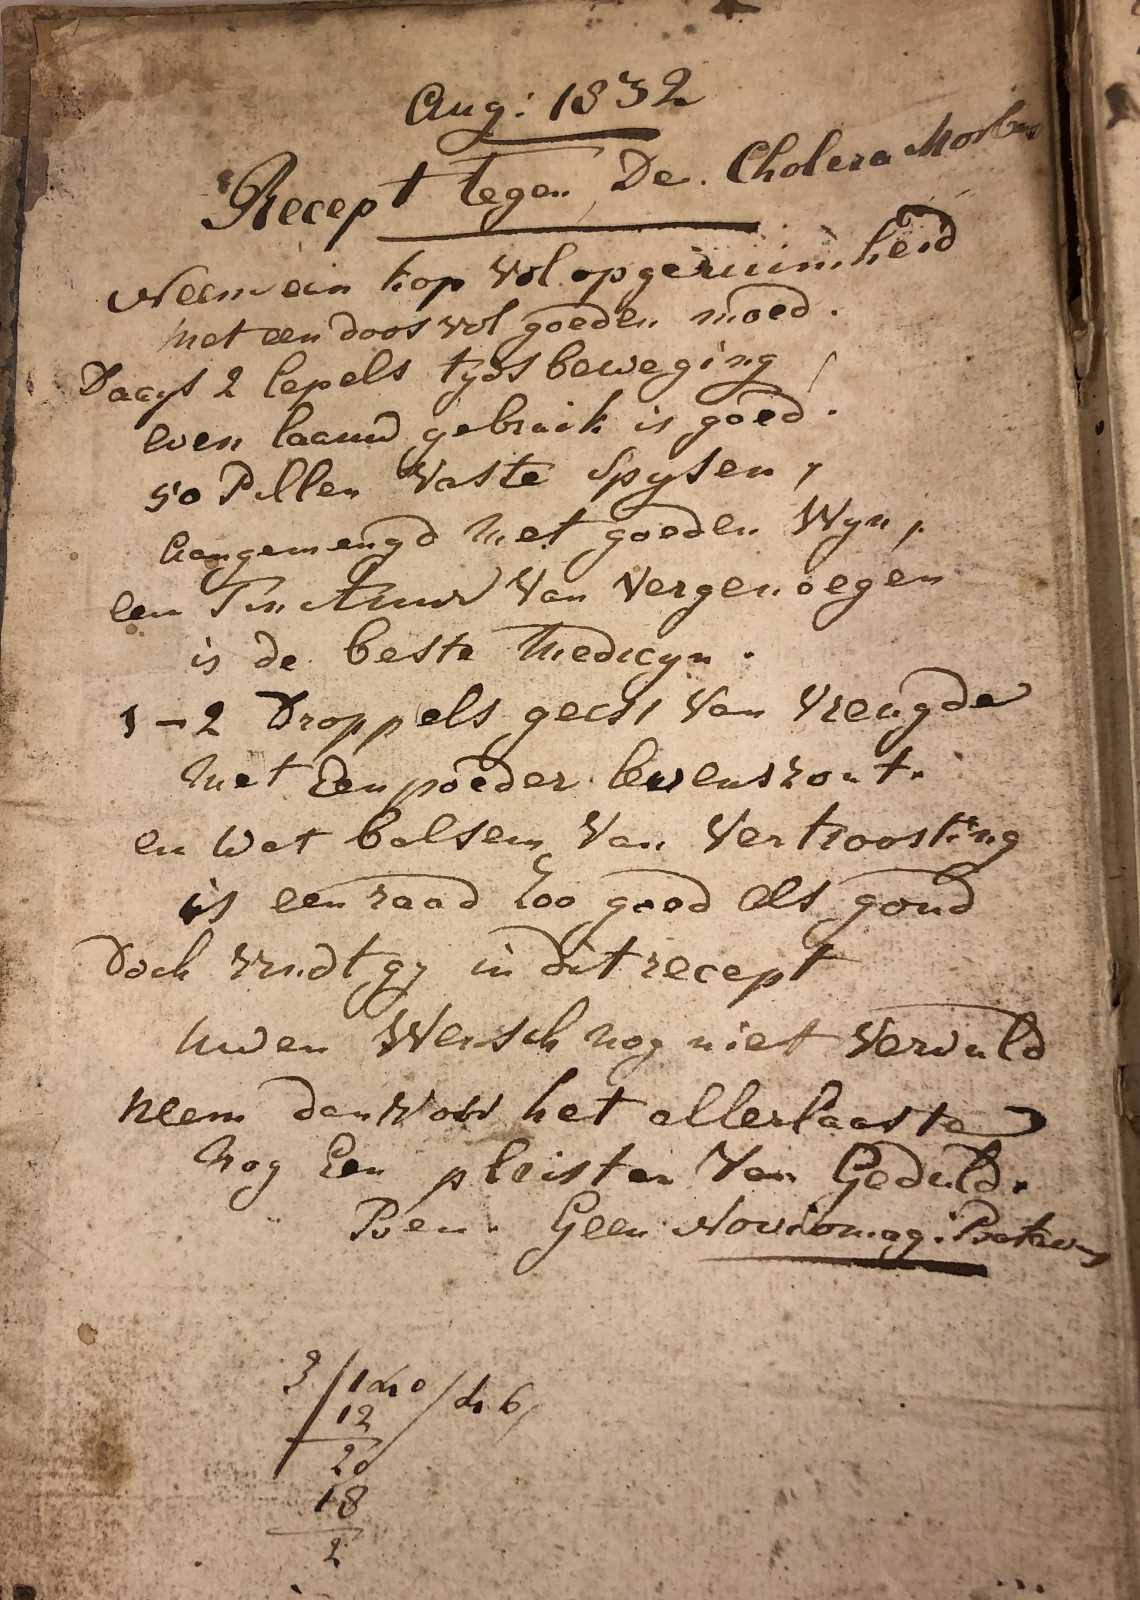 Aug: 1832
Recept tegen De Cholera Morbus
Neem een kop vol opgeruimheid
met een doos vol goeden moed.
Daags 2 lepels tyds beweging,
even laauw gebruik is goed.
50 Pillen Vaste Spysen,
aangemengd met goeden Wyn,
een Tinctuur Van Vergenoegen
is de beste Medicyn.
1-2 Droppels geest Van Vreugde
met Een poeder levenszout.
en Wat balsem Van Vertroosting
is een raad zoo goed als goud
Doch vindt gy in dit recept
uwen Wensch nog niet Vervuld
neem dan voor het allerlaaste
nog Een pleister Van Geduld.
Geen Noviomag:
3/140/46
12
20
18
2